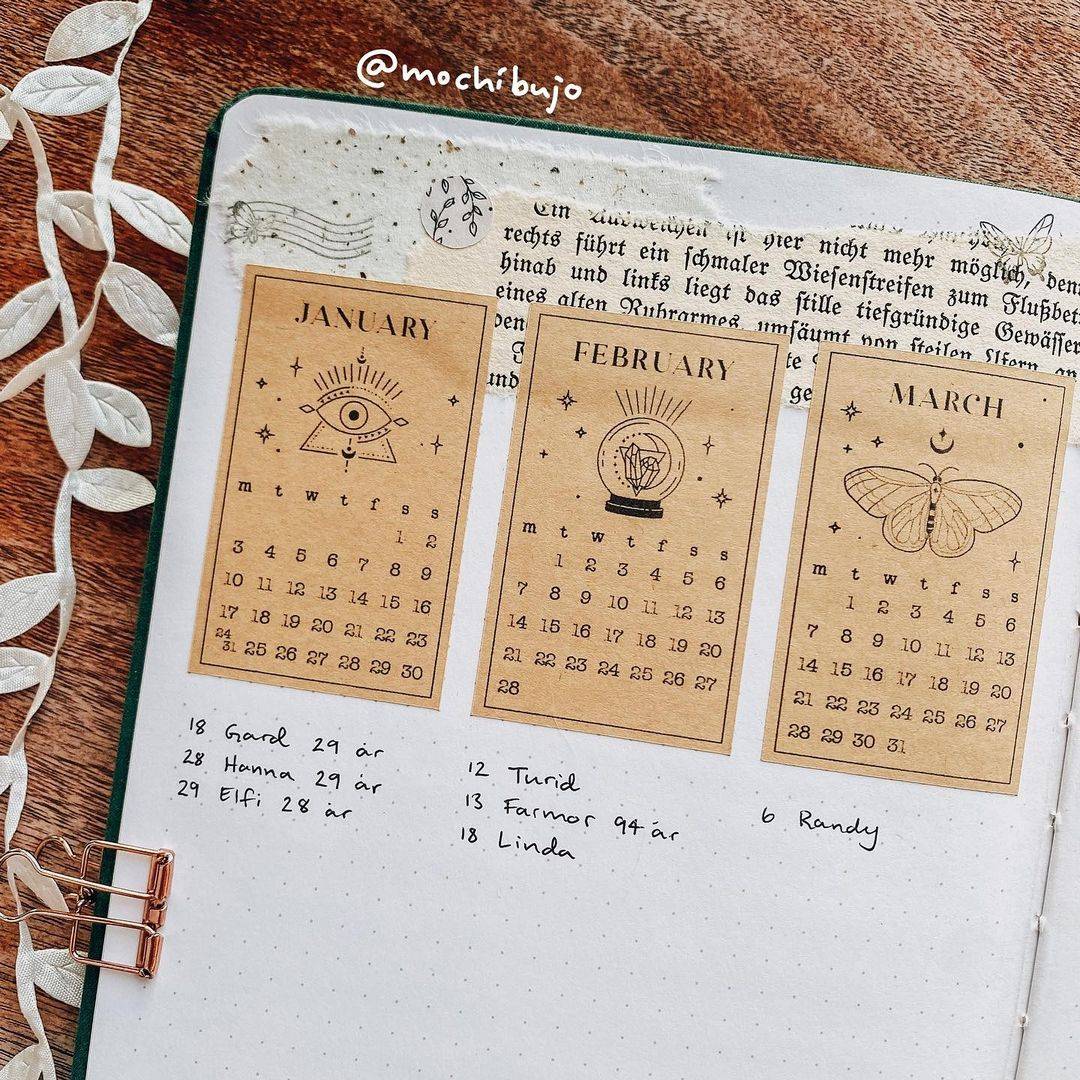 @mochibujo
Ein Ausweichen ist hier nicht mehr möglich, denn
rechts führt ein schmaler Wiesenstreifen zum Flußbet
hinab und links liegt das stille tiefgründige Gewässer
eines alten Ruhrarmes, umsäumt von steilen Ufern, an
und
JANUARY
m t w t f s s
1 2
3 4 5 6 7 8 9
10 11 12 13 14 15 16
17 18 19 20 21 22 23
24
31 25 26 27 28 29 30
FEBRUARY
m t w t f s s
1 2 3 4 5 6
7 8 9 10 11 12 13
14 15 16 17 18 19 20
21 22 23 24 25 26 27
28
MARCH
m t w t f s s
1 2 3 4 5 6
7 8 9 10 11 12 13
14 15 16 17 18 19 20
21 22 23 24 25 26 27
28 29 30 31
18 Gard 29 år
28 Hanna 29 år
29 Elfi 28 år
12 Turid
13 Farmor 94 år
18 Linda
6 Randy